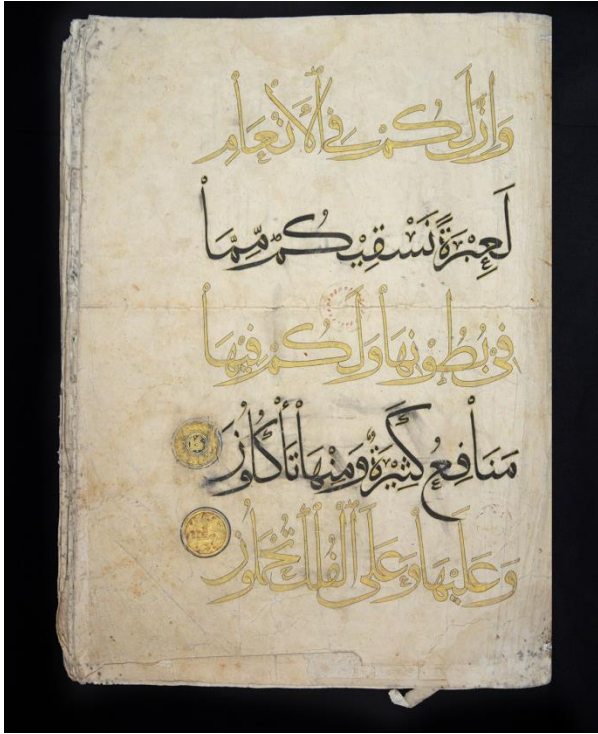 وَإِنَّ لَكُمْ فِي الْأَنْعَامِ
لَعِبْرَةً نُسْقِيكُمْ مِمَّا
فِي بُطُونِهَا وَلَكُمْ فِيهَا
مَنَافِعُ كَثِيرَةٌ وَمِنْهَا تَأْكُلُونَ
وَعَلَيْهَا وَعَلَى الْفُلْكِ تُحْمَلُونَ